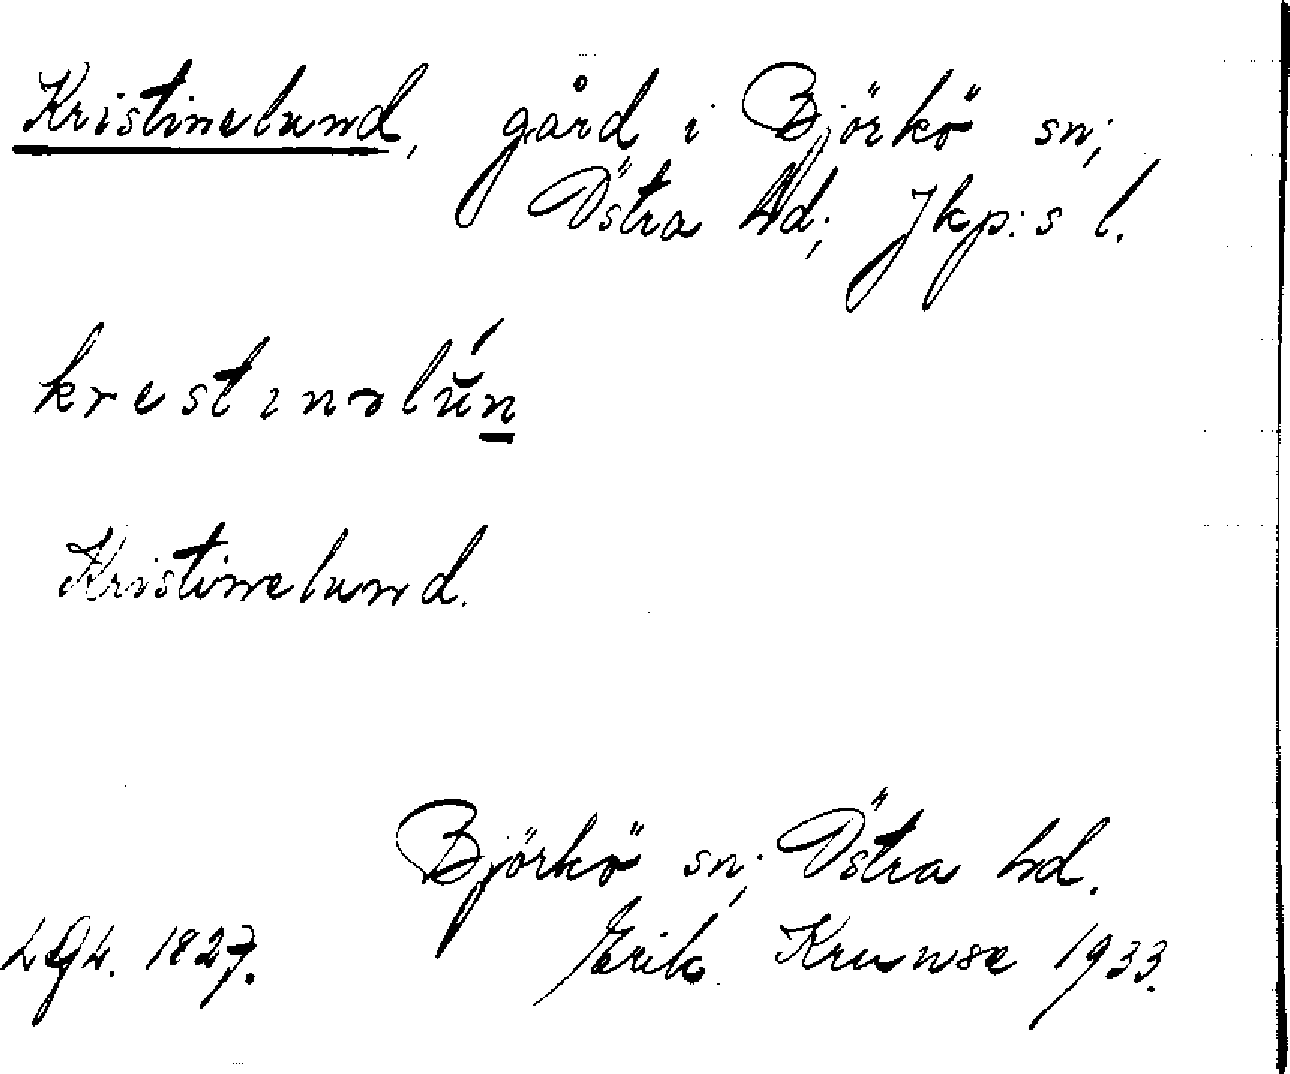 Kristinelund, gård i Björkö sn;
Östra hd; Jkp:s l.
krestinəlŭ́n
Kristinelund.
Björkö sn; Östra hd.
1827. Erik Krunse 1933.